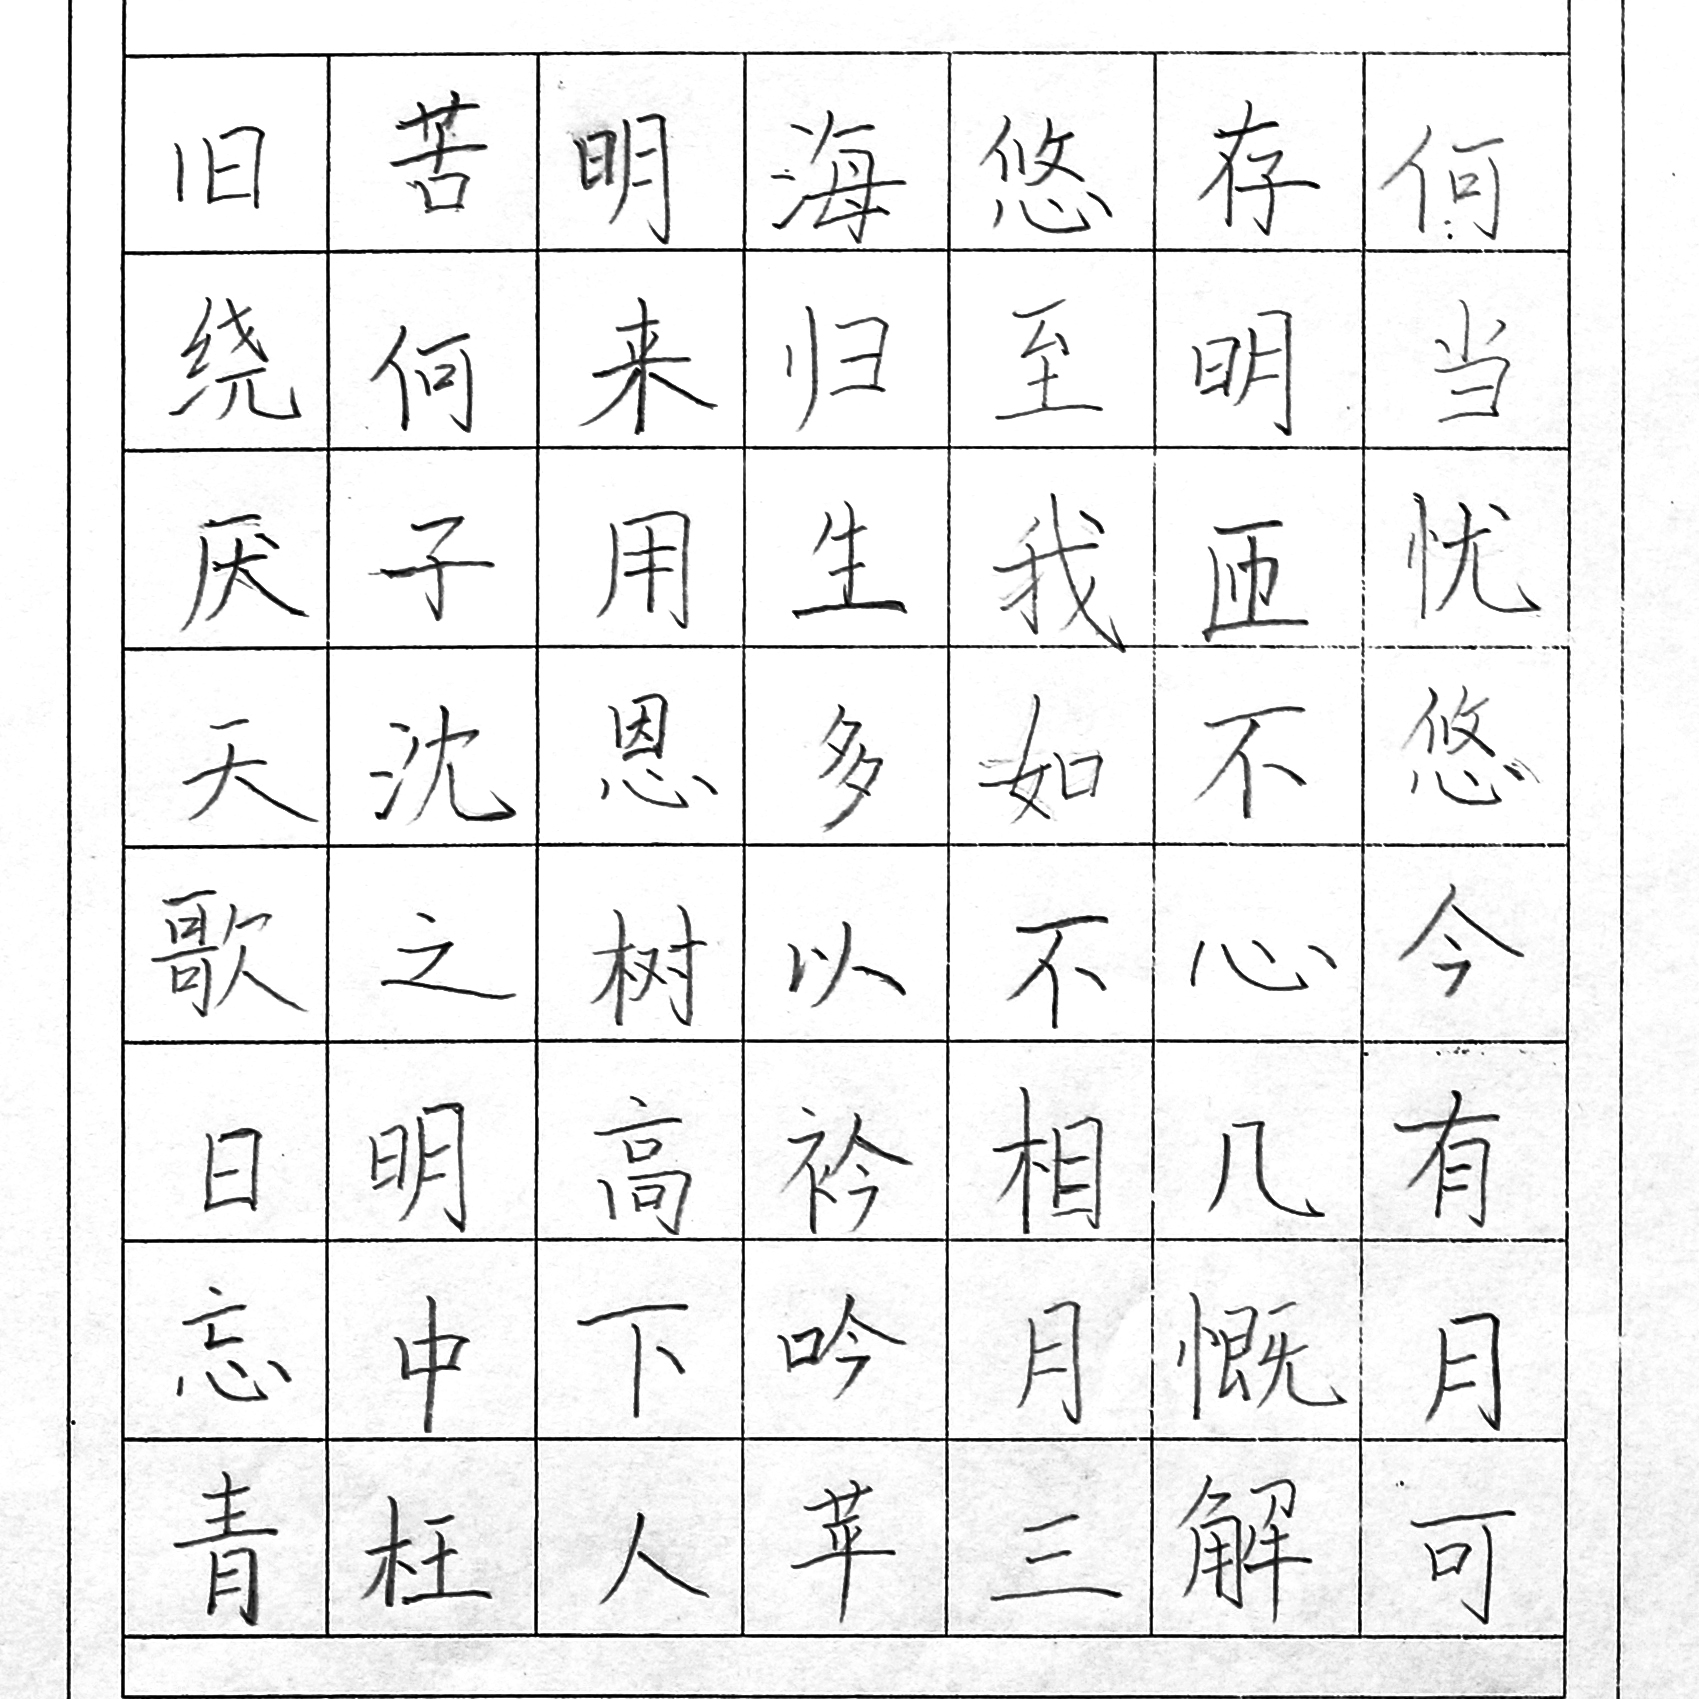 何当忧悠今有月可
存明匝不心几慨解
悠至我如不相月三
海归生多以衿吟苹
明来用恩树高下人
苦何子沈之明中枉
旧绕厌天歌日忘青